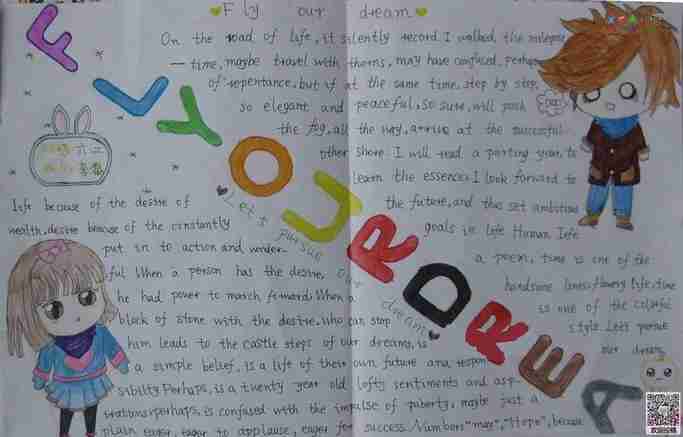 Fly our dream
On the road of life, it silently record I walked, the milepost
— time, maybe travel with thorns, may have confused, perhaps
of repentance, but if at the same time, step by step,
so elegant and peaceful, so sure, will push
the fog, all the way, arrive at the successful
other shore. I will read a parting year, to
learn the essence. I look forward to
the future, and thus set ambitious
goals in life Human life
a poem, time is one of the
handsome lines; flowery life, time
is one of the colorful
style. Let's pursue
our dream
FLYOURDREA
Let's pursue our dream
life because of the desire of
wealth, desire because of the constantly
put in to action and wonder-
ful When a person has the desire,
he had power to march forward; When a
block of stone with the desire, who can stop
him leads to the castle steps of our dreams, is
a simple belief, is a life of their own future and respon
sibility Perhaps, is a twenty year old lofty sentiments and asp-
irations; perhaps, is confused with the impulse of puberty, maybe just a
plain eager, eager to applause, eager for success. Number: "may", "Hope", because